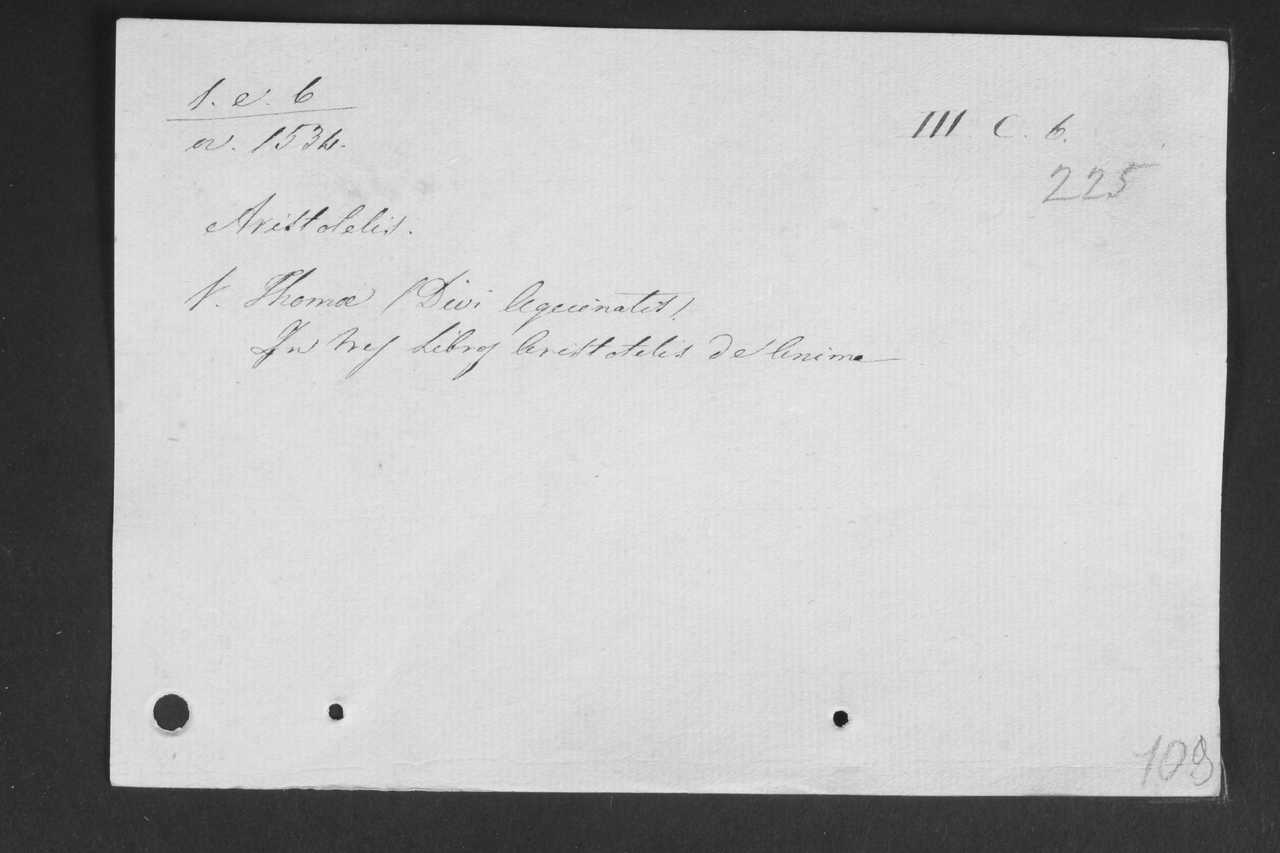 1. e. 6
a. 1534.
III C. 6.
225
Aristotelis.
V. Thomæ (Divi Aquinatis)
In tres Libros Aristotelis de Anima
109